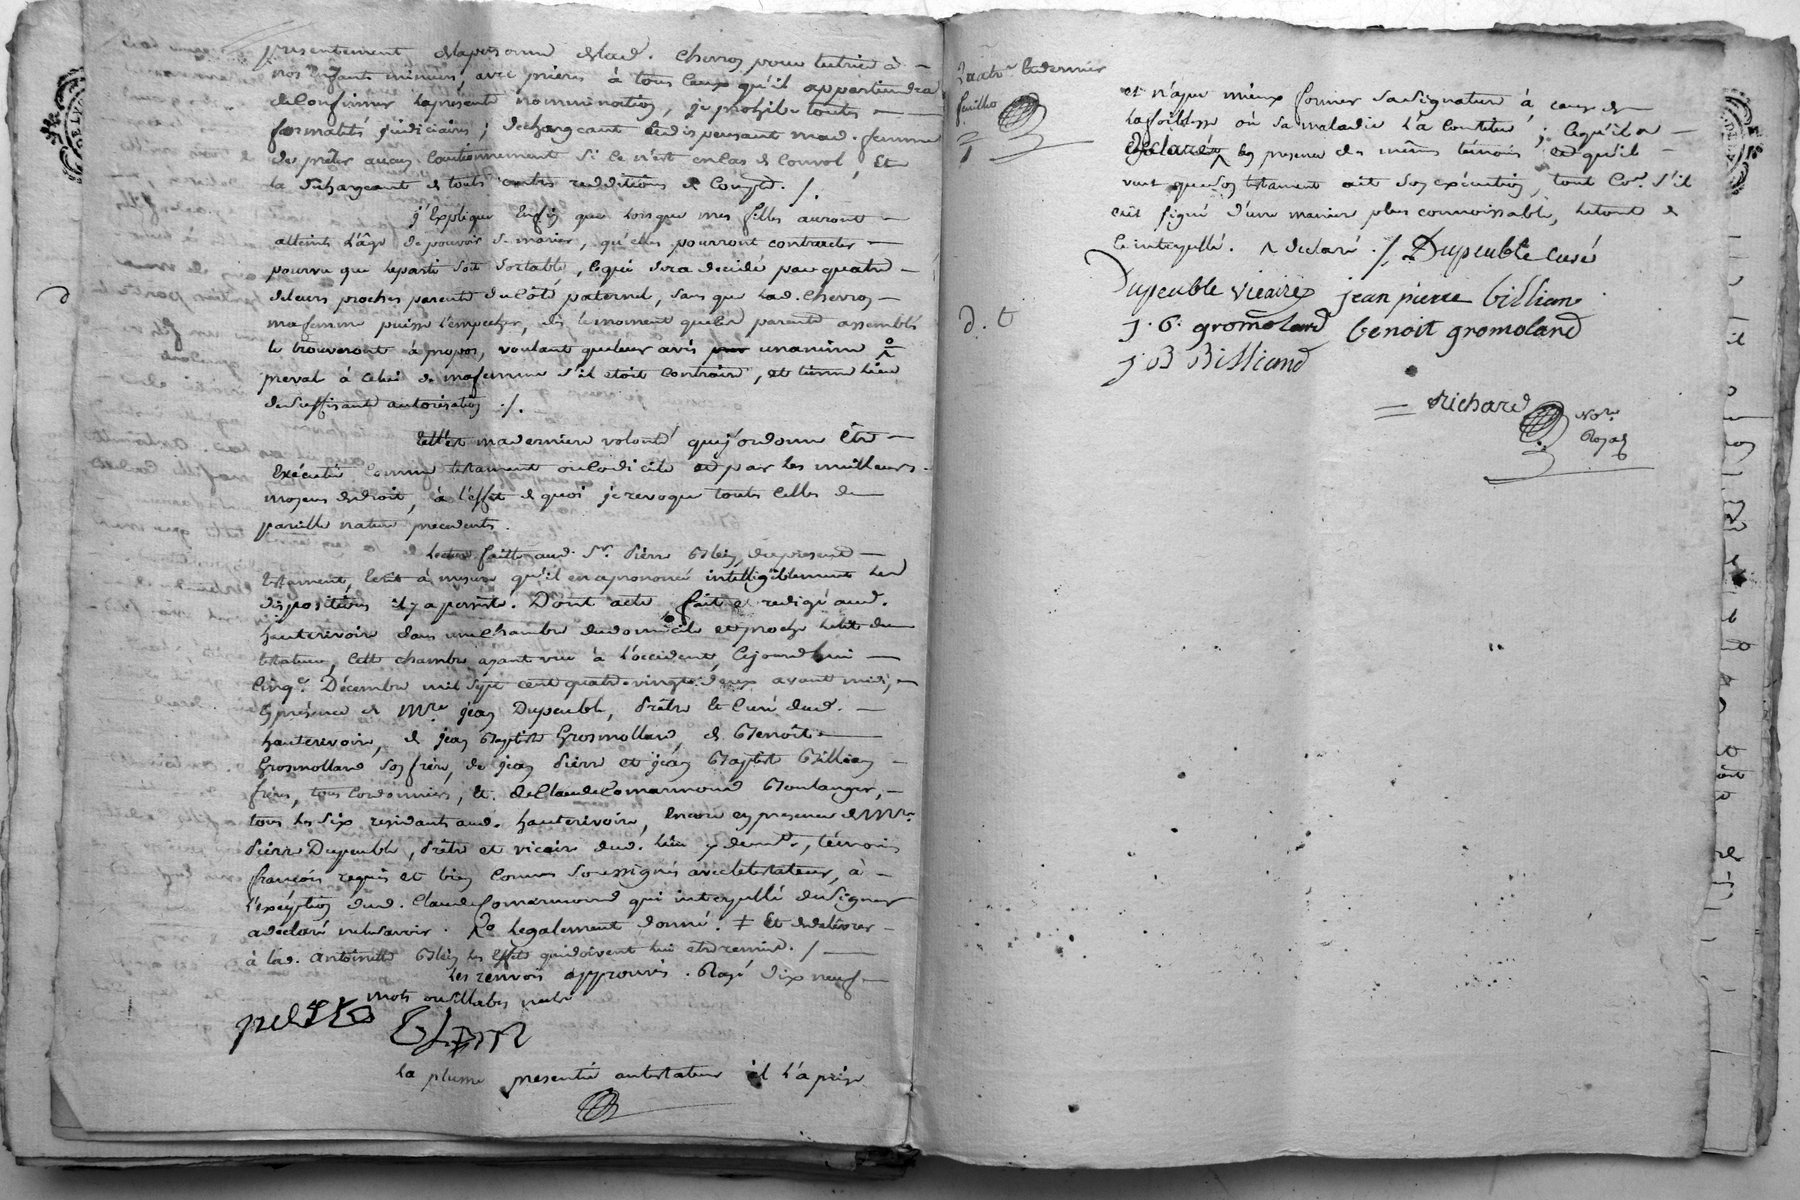 presentement de la personne de lad. Chervos pour tutrice à
nos Enfants mineurs, avec prieres à tous Ceux qu'il appartiendra
de Confirmer la présente nommination, je prohibe toutes
formalités judiciaires ; dechargeant Et dispensant mad. femme
de prêter aucun Cautionnement si ce n'est en Cas de Convol, Et
la dechargeant de toutes autres redditions de Compte. /.
j'Explique Enfin que lorsque mes filles auront
atteint l'âge de pouvoir se marier, qu'elles pourront contracter
pourvu que le parti soit sortable, Ce qui sera decidé par quatre
de leurs proches parents du Côté paternel, sans que lad. Chervos
ma femme puisse l'empecher, dès le moment que les parents assemblés
le trouveront à propos, voulant que leur avis unanime
preval à celui de ma femme s'il etoit contraire, et tienne lieu
de suffisante autorisation ./.
telle est ma derniere volonté que j'ordonne être
Exécutée Comme testament ou Codicile et par les meilleurs
moyens de droit, à l'effet de quoi je revoque toutes Celles de
pareille nature precedents.
Lecture faitte aud. Sr. Pierre Blein du present
testament, Ecrit à mesure qu'il en a prononcé intelligiblement les
dispositions il y a persisté. Dont acte, fait et redigé aud.
hauterivoire dans une Chambre du domicile et proche le lit du
testateur, Cette chambre ayant vue à l'occident, Cejourd'hui
Cinq. Décembre mil sept cent quatre vingts deux avant midi,
En présence de Mre jean Dupeuble, Prêtre et Curé dud.
hauterivoire, de jean Baptiste Grosmolland, de Benoît
Grosmolland son frère, de jean Pierre et jean Baptiste Billian
freres, tous Cordonniers, Et de Claude Comarmond Boulanger,
tous les six residants aud. hauterivoire, Encore en presence de Mre
Pierre Dupeuble, Prêtre et vicaire dud. lieu y demt., témoins
françois requis et bien Connus soussignés avec le testateur, à
l'exception dud. Claude Comarmond qui interpellé de signer
a déclaré ne le savoir. legalement donné. ‡ Et de delivrer
à lad. Antoinette Blein les Effets qui doivent lui etre remis. /
les renvois approuvés. Rayé dix neuf
mots ou sillabes nuls
la plume presentée au testateur il l'a prise
dernier
feuillet
et n'a pu mieux former sa signature à cause de
la foiblesse où sa maladie l'a Constitué ; Ce qu'il a
En presence des mêmes témoins et qu'il
veut que son testament ait son exécution, tout Coe. s'il
eut signé d'une maniere plus connoissable, le tout de
Ce interpellé. ^ declaré ./. Dupeuble curé
Dupeuble vicaire jean pierre billian
d. t
J. B. gromolard benoit gromolard
J B Billiand
Richard
No.re
Royal